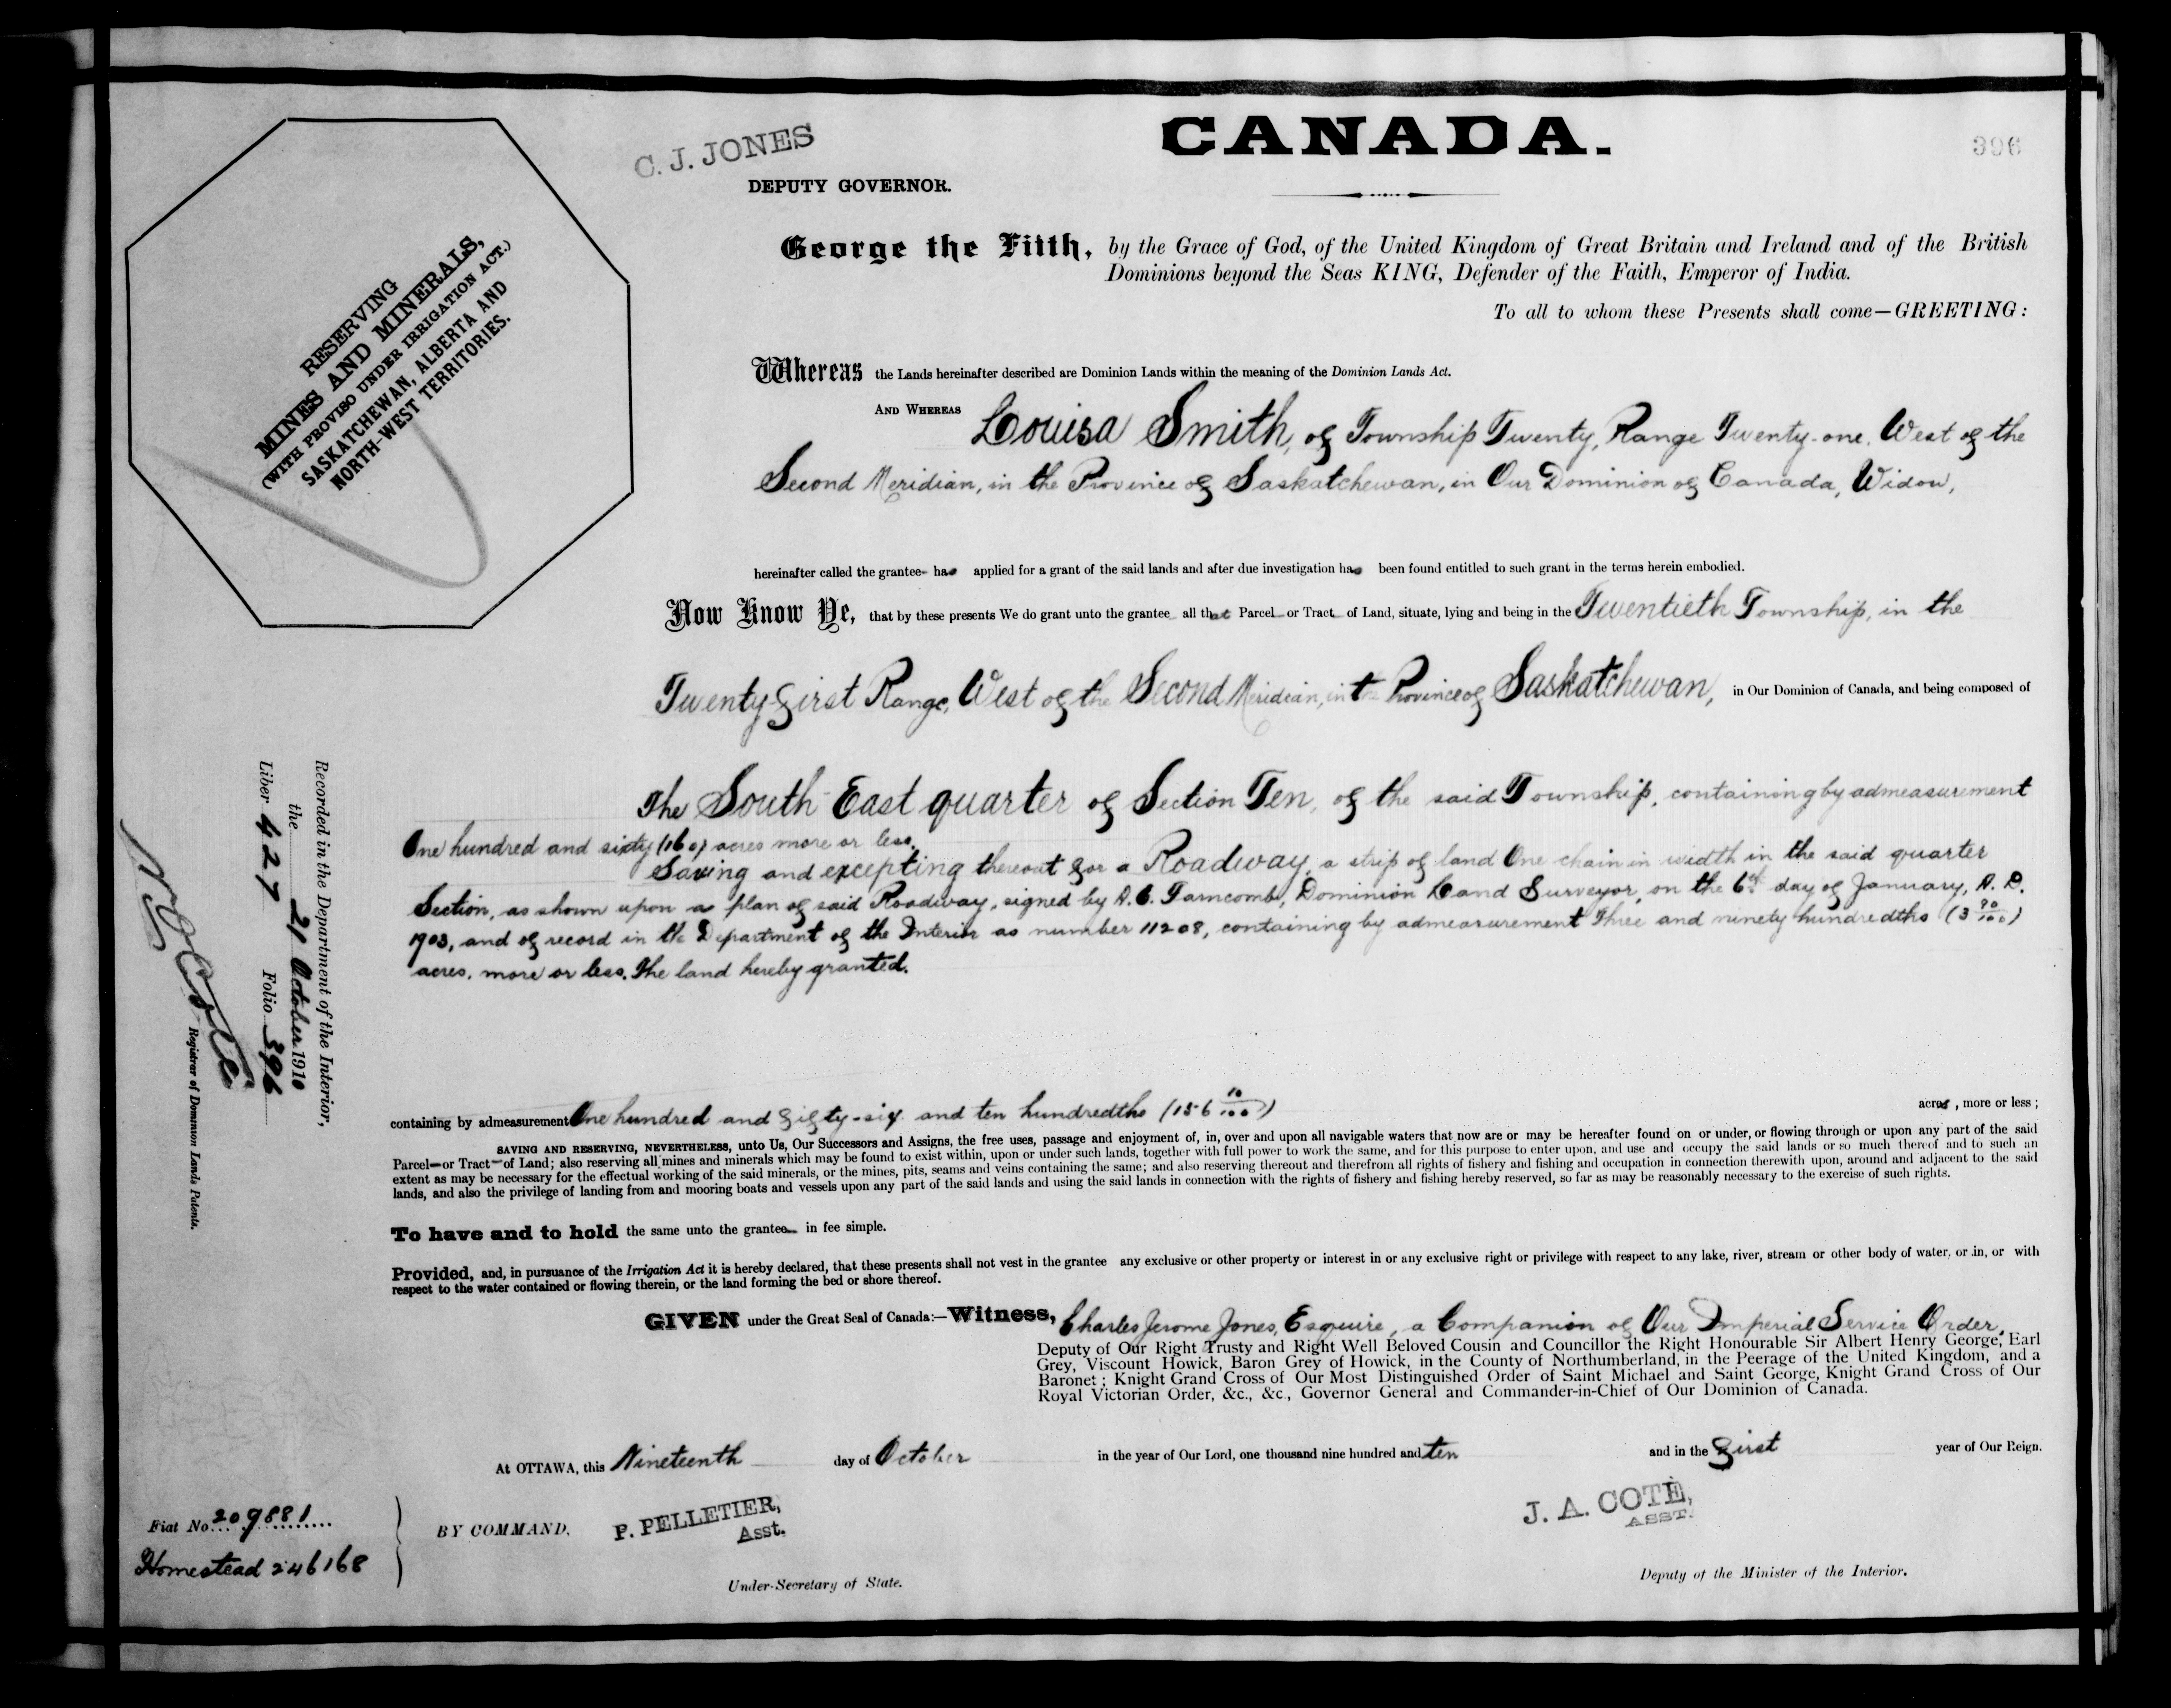 C. J. JONES
DEPUTY GOVERNOR.
CANADA.
396
RESERVING
MINES AND MINERALS,
(WITH PROVISO UNDER IRRIGATION ACT.)
SASKATCHEWAN, ALBERTA AND
NORTH-WEST TERRITORIES.
George the Fifth, by the Grace of God, of the United Kingdom of Great Britain and Ireland and of the British
Dominions beyond the Seas KING, Defender of the Faith, Emperor of India.
To all to whom these Presents shall come—GREETING:
Whereas the Lands hereinafter described are Dominion Lands within the meaning of the Dominion Lands Act.
AND WHEREAS Louisa Smith, of Township Twenty, Range Twenty-one, West of the
Second Meridian, in the Province of Saskatchewan, in Our Dominion of Canada, Widow,
hereinafter called the grantee has applied for a grant of the said lands and after due investigation has been found entitled to such grant in the terms herein embodied.
Now Know Ye, that by these presents We do grant unto the grantee all that Parcel or Tract of Land, situate, lying and being in the Twentieth Township, in the
Twenty-first Range, West of the Second Meridian, in the Province of Saskatchewan, in Our Dominion of Canada, and being composed of
The South East quarter of Section Ten, of the said Township, containing by admeasurement
One hundred and sixty (160) acres more or less.
Saving and excepting thereout for a Roadway, a strip of land One chain in width in the said quarter
Section, as shown upon a plan of said Roadway, signed by A. C. Farncomb, Dominion Land Surveyor, on the 6th day of January, A. D.
1903, and of record in the Department of the Interior as number 11208, containing by admeasurement Three and ninety hundredths (3 90/100)
acres, more or less. The land hereby granted.
containing by admeasurement One hundred and fifty-six and ten hundredths (156 10/100) acres, more or less;
SAVING AND RESERVING, NEVERTHELESS, unto Us, Our Successors and Assigns, the free uses, passage and enjoyment of, in, over and upon all navigable waters that now are or may be hereafter found on or under, or flowing through or upon any part of the said
Parcel or Tract of Land; also reserving all mines and minerals which may be found to exist within, upon or under such lands, together with full power to work the same, and for this purpose to enter upon, and use and occupy the said lands or so much thereof and to such an
extent as may be necessary for the effectual working of the said minerals, or the mines, pits, seams and veins containing the same; and also reserving thereout and therefrom all rights of fishery and fishing and occupation in connection therewith upon, around and adjacent to the said
lands, and also the privilege of landing from and mooring boats and vessels upon any part of the said lands and using the said lands in connection with the rights of fishery and fishing hereby reserved, so far as may be reasonably necessary to the exercise of such rights.
To have and to hold the same unto the grantee in fee simple.
Provided, and, in pursuance of the Irrigation Act it is hereby declared, that these presents shall not vest in the grantee any exclusive or other property or interest in or any exclusive right or privilege with respect to any lake, river, stream or other body of water, or in, or with
respect to the water contained or flowing therein, or the land forming the bed or shore thereof.
GIVEN under the Great Seal of Canada:—Witness, Charles Jerome Jones, Esquire, a Companion of Our Imperial Service Order,
Deputy of Our Right Trusty and Right Well Beloved Cousin and Councillor the Right Honourable Sir Albert Henry George, Earl
Grey, Viscount Howick, Baron Grey of Howick, in the County of Northumberland, in the Peerage of the United Kingdom, and a
Baronet; Knight Grand Cross of Our Most Distinguished Order of Saint Michael and Saint George, Knight Grand Cross of Our
Royal Victorian Order, &c., &c., Governor General and Commander-in-Chief of Our Dominion of Canada.
At OTTAWA, this Nineteenth day of October in the year of Our Lord, one thousand nine hundred and ten and in the first year of Our Reign.
BY COMMAND.
P. PELLETIER,
Asst.
Under-Secretary of State.
J. A. COTE,
ASST.
Deputy of the Minister of the Interior.
Recorded in the Department of the Interior,
the 21 October 1910
Liber 427 Folio 396
Registrar of Dominion Lands Patents.
Fiat No. 209881
Homestead 246168